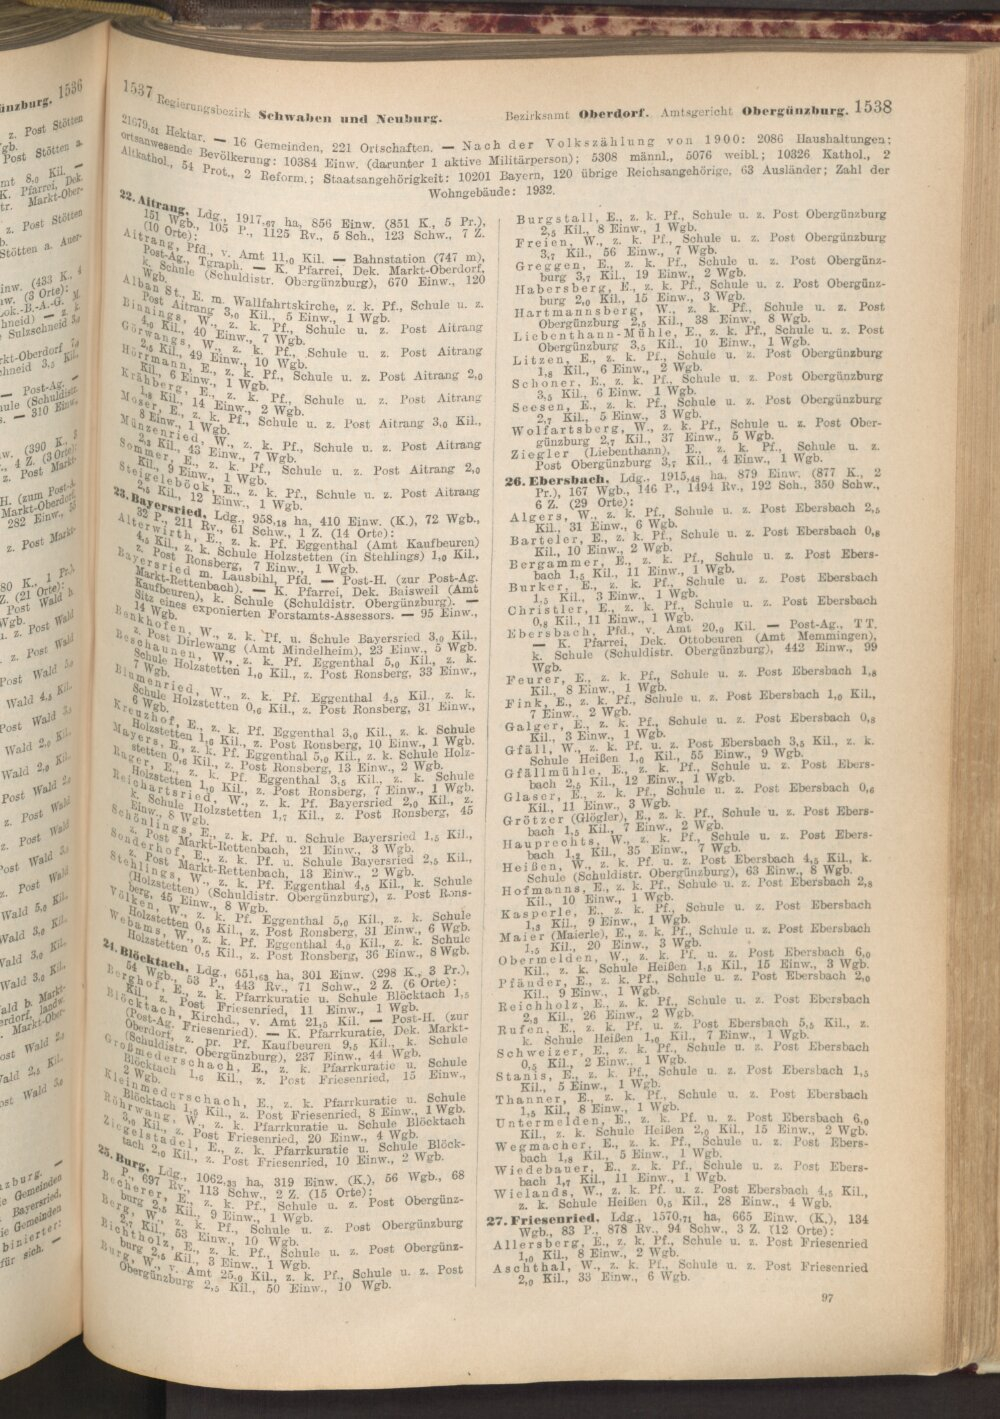 1536
ünzburg.
z. Post Stötten
Post Stötten a.
mt 8,0 Kil.
K. Pfarrei, Dek.
Markt-Ober-
z. Post Stötten
Stötten a. Auer-
1537 Regierungsbezirk Schwaben und Neuburg.
Bezirksamt Oberdorf. Amtsgericht Obergünzburg. 1538
21679,51 Hektar. — 16 Gemeinden, 221 Ortschaften. — Nach der Volkszählung von 1900: 2086 Haushaltungen;
ortsanwesende Bevölkerung: 10384 Einw. (darunter 1 aktive Militärperson); 5308 männl., 5076 weibl.; 10326 Kathol., 2
Altkathol., 54 Prot., 2 Reform.; Staatsangehörigkeit: 10201 Bayern, 120 übrige Reichsangehörige, 63 Ausländer; Zahl der
Wohngebäude: 1932.
22. Aitrang, Ldg., 1917,67 ha, 856 Einw. (851 K., 5 Pr.),
151 Wgb., 105 P., 1125 Rv., 5 Sch., 123 Schw., 7 Z.
(10 Orte):
Aitrang, Pfd., v. Amt 11,0 Kil. — Bahnstation (747 m),
Post-Ag., Tgraph. — K. Pfarrei, Dek. Markt-Oberdorf,
k. Schule (Schuldistr. Obergünzburg), 670 Einw., 120
Wgb.
Alban St., E. m. Wallfahrtskirche, z. k. Pf., Schule u. z.
Post Aitrang 3,0 Kil., 5 Einw., 1 Wgb.
Binnings, W., z. k. Pf., Schule u. z. Post Aitrang
4,0 Kil., 40 Einw., 7 Wgb.
Görwangs, W., z. k. Pf., Schule u. z. Post Aitrang
2,5 Kil., 49 Einw., 10 Wgb.
Hörmann, E., z. k. Pf., Schule u. z. Post Aitrang 2,0
Kil., 6 Einw., 1 Wgb.
Krähberg, E., z. k. Pf., Schule u. z. Post Aitrang
1,8 Kil., 14 Einw., 2 Wgb.
Moser, E., z. k. Pf., Schule u. z. Post Aitrang 3,0 Kil.,
8 Einw., 1 Wgb.
Münzenried, W., z. k. Pf., Schule u. z. Post Aitrang
2,3 Kil., 43 Einw., 7 Wgb.
Sommer, E., z. k. Pf., Schule u. z. Post Aitrang 2,0
Kil., 9 Einw., 1 Wgb.
Steigeleböck, E., z. k. Pf., Schule u. z. Post Aitrang
2,5 Kil., 12 Einw., 1 Wgb.
23. Bayersried, Ldg., 958,18 ha, 410 Einw. (K.), 72 Wgb.,
32 P., 211 Rv., 61 Schw., 1 Z. (14 Orte):
Alterwirth, E., z. k. Pf. Eggenthal (Amt Kaufbeuren)
4,5 Kil., z. k. Schule Holzstetten (in Stehlings) 1,0 Kil.,
z. Post Ronsberg, 7 Einw., 1 Wgb.
Bayersried m. Lausbihl, Pfd. — Post-H. (zur Post-Ag.
Markt-Rettenbach). — K. Pfarrei, Dek. Baisweil (Amt
Kaufbeuren), k. Schule (Schuldistr. Obergünzburg). —
Sitz eines exponierten Forstamts-Assessors. — 95 Einw.,
14 Wgb.
Benkhofen, W., z. k. Pf. u. Schule Bayersried 3,0 Kil.,
z. Post Dirlewang (Amt Mindelheim), 23 Einw., 5 Wgb.
Beschaunen, W., z. k. Pf. Eggenthal 5,0 Kil., z. k.
Schule Holzstetten 1,0 Kil., z. Post Ronsberg, 33 Einw.,
7 Wgb.
Blumenried, W., z. k. Pf. Eggenthal 4,5 Kil., z. k.
Schule Holzstetten 0,6 Kil., z. Post Ronsberg, 31 Einw.,
6 Wgb.
Kreuzhof, E., z. k. Pf. Eggenthal 3,0 Kil., z. k. Schule
Holzstetten 1,6 Kil., z. Post Ronsberg, 10 Einw., 1 Wgb.
Mayers, E., z. k. Pf. Eggenthal 5,0 Kil., z. k. Schule Holz-
stetten 0,6 Kil., z. Post Ronsberg, 13 Einw., 2 Wgb.
Rager, E., z. k. Pf. Eggenthal 3,5 Kil., z. k. Schule
Holzstetten 1,0 Kil., z. Post Ronsberg, 7 Einw., 1 Wgb.
Reichartsried, W., z. k. Pf. Bayersried 2,0 Kil., z.
k. Schule Holzstetten 1,7 Kil., z. Post Ronsberg, 45
Einw., 8 Wgb.
Schönlings, E., z. k. Pf. u. Schule Bayersried 1,5 Kil.,
z. Post Markt-Rettenbach, 21 Einw., 3 Wgb.
Sonderhof, E., z. k. Pf. u. Schule Bayersried 2,5 Kil.,
z. Post Markt-Rettenbach, 13 Einw., 2 Wgb.
Stehlings, W., z. k. Pf. Eggenthal 4,5 Kil., k. Schule
(Holzstetten) (Schuldistr. Obergünzburg), z. Post Rons-
berg, 45 Einw., 8 Wgb.
Völken, W., z. k. Pf. Eggenthal 5,0 Kil., z. k. Schule
Holzstetten 0,5 Kil., z. Post Ronsberg, 31 Einw., 6 Wgb.
Webams, W., z. k. Pf. Eggenthal 4,0 Kil., z. k. Schule
Holzstetten 0,5 Kil., z. Post Ronsberg, 36 Einw., 8 Wgb.
24. Blöcktach, Ldg., 651,63 ha, 301 Einw. (298 K., 3 Pr.),
54 Wgb., 53 P., 443 Rv., 71 Schw., 2 Z. (6 Orte):
Berghof, E., z. k. Pfarrkuratie u. Schule Blöcktach 1,5
Kil., z. Post Friesenried, 11 Einw., 1 Wgb.
Blöcktach, Kirchd., v. Amt 21,5 Kil. — Post-H. (zur
(Post-Ag. Friesenried). — K. Pfarrkuratie, Dek. Markt-
Oberdorf, z. pr. Pf. Kaufbeuren 9,5 Kil., k. Schule
(Schuldistr. Obergünzburg), 237 Einw., 44 Wgb.
Großmederschach, E., z. k. Pfarrkuratie u. Schule
Blöcktach 1,6 Kil., z. Post Friesenried, 15 Einw.,
2 Wgb.
Kleinmederschach, E., z. k. Pfarrkuratie u. Schule
Blöcktach 1,5 Kil., z. Post Friesenried, 8 Einw., 1 Wgb.
Röhrwang, W., z. k. Pfarrkuratie u. Schule Blöcktach
3,0 Kil., z. Post Friesenried, 20 Einw., 4 Wgb.
Ziegelstadel, E., z. k. Pfarrkuratie u. Schule Blöck-
tach 2,0 Kil., z. Post Friesenried, 10 Einw., 2 Wgb.
25. Burg, Ldg., 1062,33 ha, 319 Einw. (K.), 56 Wgb., 68
P., 697 Rv., 113 Schw., 2 Z. (15 Orte):
Becherer, E., z. k. Pf., Schule u. z. Post Obergünz-
burg 2,5 Kil., 9 Einw., 1 Wgb.
Berg, W., z. k. Pf., Schule u. z. Post Obergünzburg
2,7 Kil., 53 Einw., 10 Wgb.
Bichtholz, E., z. k. Pf., Schule u. z. Post Obergünz-
burg 2,5 Kil., 3 Einw., 1 Wgb.
Burg, W., v. Amt 25,0 Kil., z. k. Pf., Schule u. z. Post
Obergünzburg 2,5 Kil., 50 Einw., 10 Wgb.
Burgstall, E., z. k. Pf., Schule u. z. Post Obergünzburg
2,5 Kil., 8 Einw., 1 Wgb.
Freien, W., z. k. Pf., Schule u. z. Post Obergünzburg
3,7 Kil., 56 Einw., 7 Wgb.
Greggen, E., z. k. Pf., Schule u. z. Post Obergünz-
burg 3,7 Kil., 19 Einw., 2 Wgb.
Habersberg, E., z. k. Pf., Schule u. z. Post Obergünz-
burg 2,0 Kil., 15 Einw., 3 Wgb.
Hartmannsberg, W., z. k. Pf., Schule u. z. Post
Obergünzburg 2,5 Kil., 38 Einw., 8 Wgb.
Liebenthann-Mühle, E., z. k. Pf., Schule u. z. Post
Obergünzburg 3,5 Kil., 10 Einw., 1 Wgb.
Litzen, E., z. k. Pf., Schule u. z. Post Obergünzburg
1,8 Kil., 6 Einw., 2 Wgb.
Schoner, E., z. k. Pf., Schule u. z. Post Obergünzburg
3,5 Kil., 6 Einw. 1 Wgb.
Seesen, E., z. k. Pf., Schule u. z. Post Obergünzburg
2,7 Kil., 5 Einw., 3 Wgb.
Wolfartsberg, W., z. k. Pf., Schule u. z. Post Ober-
günzburg 2,7 Kil., 37 Einw., 5 Wgb.
Ziegler (Liebenthann), E., z. k. Pf., Schule u. z.
Post Obergünzburg 3,7 Kil., 4 Einw., 1 Wgb.
26. Ebersbach, Ldg., 1915,48 ha, 879 Einw. (877 K., 2
Pr.), 167 Wgb., 146 P., 1494 Rv., 192 Sch., 350 Schw.,
6 Z. (29 Orte):
Algers, W., z. k. Pf., Schule u. z. Post Ebersbach 2,5
Kil., 31 Einw., 6 Wgb.
Barteler, E., z. k. Pf., Schule u. z. Post Ebersbach 0,8
Kil., 10 Einw., 2 Wgb.
Bergammer, E., z. k. Pf., Schule u. z. Post Ebers-
bach 1,5 Kil., 11 Einw., 1 Wgb.
Burker, E., z. k. Pf., Schule u. z. Post Ebersbach
1,5 Kil., 3 Einw., 1 Wgb.
Christler, E., z. k. Pf., Schule u. z. Post Ebersbach
0,8 Kil., 11 Einw., 1 Wgb.
Ebersbach, Pfd., v. Amt 20,0 Kil. — Post-Ag., TT.
— K. Pfarrei, Dek. Ottobeuren (Amt Memmingen),
k. Schule (Schuldistr. Obergünzburg), 442 Einw., 99
Wgb.
Feurer, E., z. k. Pf., Schule u. z. Post Ebersbach 1,8
Kil., 8 Einw., 1 Wgb.
Fink, E., z. k. Pf., Schule u. z. Post Ebersbach 1,0 Kil.,
7 Einw., 2 Wgb.
Galger, E., z. k. Pf., Schule u. z. Post Ebersbach 0,8
Kil., 3 Einw., 1 Wgb.
Gfäll, W., z. k. Pf. u. z. Post Ebersbach 3,5 Kil., z. k.
Schule Heißen 1,0 Kil., 55 Einw., 9 Wgb.
Gfällmühle, E., z. k. Pf., Schule u. z. Post Ebers-
bach 2,5 Kil., 12 Einw., 1 Wgb.
Glaser, E., z. k. Pf., Schule u. z. Post Ebersbach 0,6
Kil., 11 Einw., 3 Wgb.
Grötzer (Glögler), E., z. k. Pf., Schule u. z. Post Ebers-
bach 1,5 Kil., 7 Einw., 2 Wgb.
Hauprechts, W., z. k. Pf., Schule u. z. Post Ebers-
bach 1,2 Kil., 35 Einw., 7 Wgb.
Heißen, W., z. k. Pf. u. z. Post Ebersbach 4,5 Kil., k.
Schule (Schuldistr. Obergünzburg), 63 Einw., 8 Wgb.
Hofmanns, E., z. k. Pf., Schule u. z. Post Ebersbach 2,8
Kil., 10 Einw., 1 Wgb.
Kasperle, E., z. k. Pf., Schule u. z. Post Ebersbach
1,3 Kil., 9 Einw., 1 Wgb.
Maier (Maierle), E., z. k. Pf., Schule u. z. Post Ebersbach
1,5 Kil., 20 Einw., 3 Wgb.
Obermelden, W., z. k. Pf. u. z. Post Ebersbach 6,0
Kil., z. k. Schule Heißen 1,5 Kil., 15 Einw., 3 Wgb.
Pfänder, E., z. k. Pf., Schule u. z. Post Ebersbach 2,0
Kil., 9 Einw., 1 Wgb.
Reichholz, E., z. k. Pf., Schule u. z. Post Ebersbach
2,3 Kil., 26 Einw., 2 Wgb.
Rufen, E., z. k. Pf. u. z. Post Ebersbach 5,5 Kil., z.
k. Schule Heißen 1,0 Kil., 7 Einw., 1 Wgb.
Schweizer, E., z. k. Pf., Schule u. z. Post Ebersbach
0,5 Kil., 2 Einw., 1 Wgb.
Stanis, E., z. k. Pf., Schule u. z. Post Ebersbach 1,5
Kil., 5 Einw., 1 Wgb.
Thanner, E., z. k. Pf., Schule u. z. Post Ebersbach
1,5 Kil., 8 Einw., 1 Wgb.
Untermelden, E., z. k. Pf. u. z. Post Ebersbach 6,0
Kil., z. k. Schule Heißen 2,0 Kil., 15 Einw., 2 Wgb.
Wegmacher, E., z. k. Pf., Schule u. z. Post Ebers-
bach 1,8 Kil., 5 Einw., 1 Wgb.
Wiedebauer, E., z. k. Pf., Schule u. z. Post Ebers-
bach 1,7 Kil., 11 Einw., 1 Wgb.
Wielands, W., z. k. Pf. u. z. Post Ebersbach 4,5 Kil.,
z. k. Schule Heißen 0,5 Kil., 28 Einw., 4 Wgb.
27. Friesenried, Ldg., 1570,71 ha, 665 Einw. (K.), 134
Wgb., 83 P., 878 Rv., 94 Schw., 3 Z. (12 Orte):
Allersberg, E., z. k. Pf., Schule u. z. Post Friesenried
1,0 Kil., 8 Einw., 2 Wgb.
Aschthal, W., z. k. Pf., Schule u. z. Post Friesenried
2,0 Kil., 33 Einw., 6 Wgb.
97